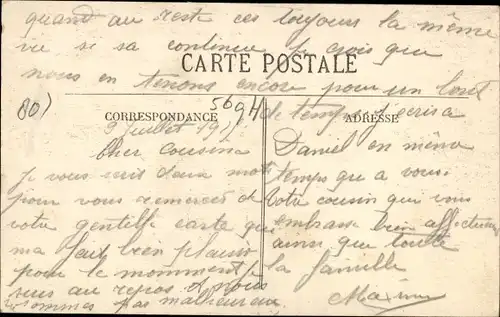 quand au reste ces toujours la même
vie si sa continue je crois que
nous en tenons encore pour un bout
CARTE POSTALE
80)
5694
de temps j'ecris a
CORRESPONDANCE
ADRESSE
9 Juillet 19
Cher Cousin
Je vous ecris deux mots
pour vous remercier de
votre gentille carte qui
ma fait bien plaisir
pour le momment je
suis au repos et nous
sommes pas malheureux
Daniel en même
temps que a vous
Votre cousin qui vous
embrasse bien affectueu
ainsi que toute
la famille